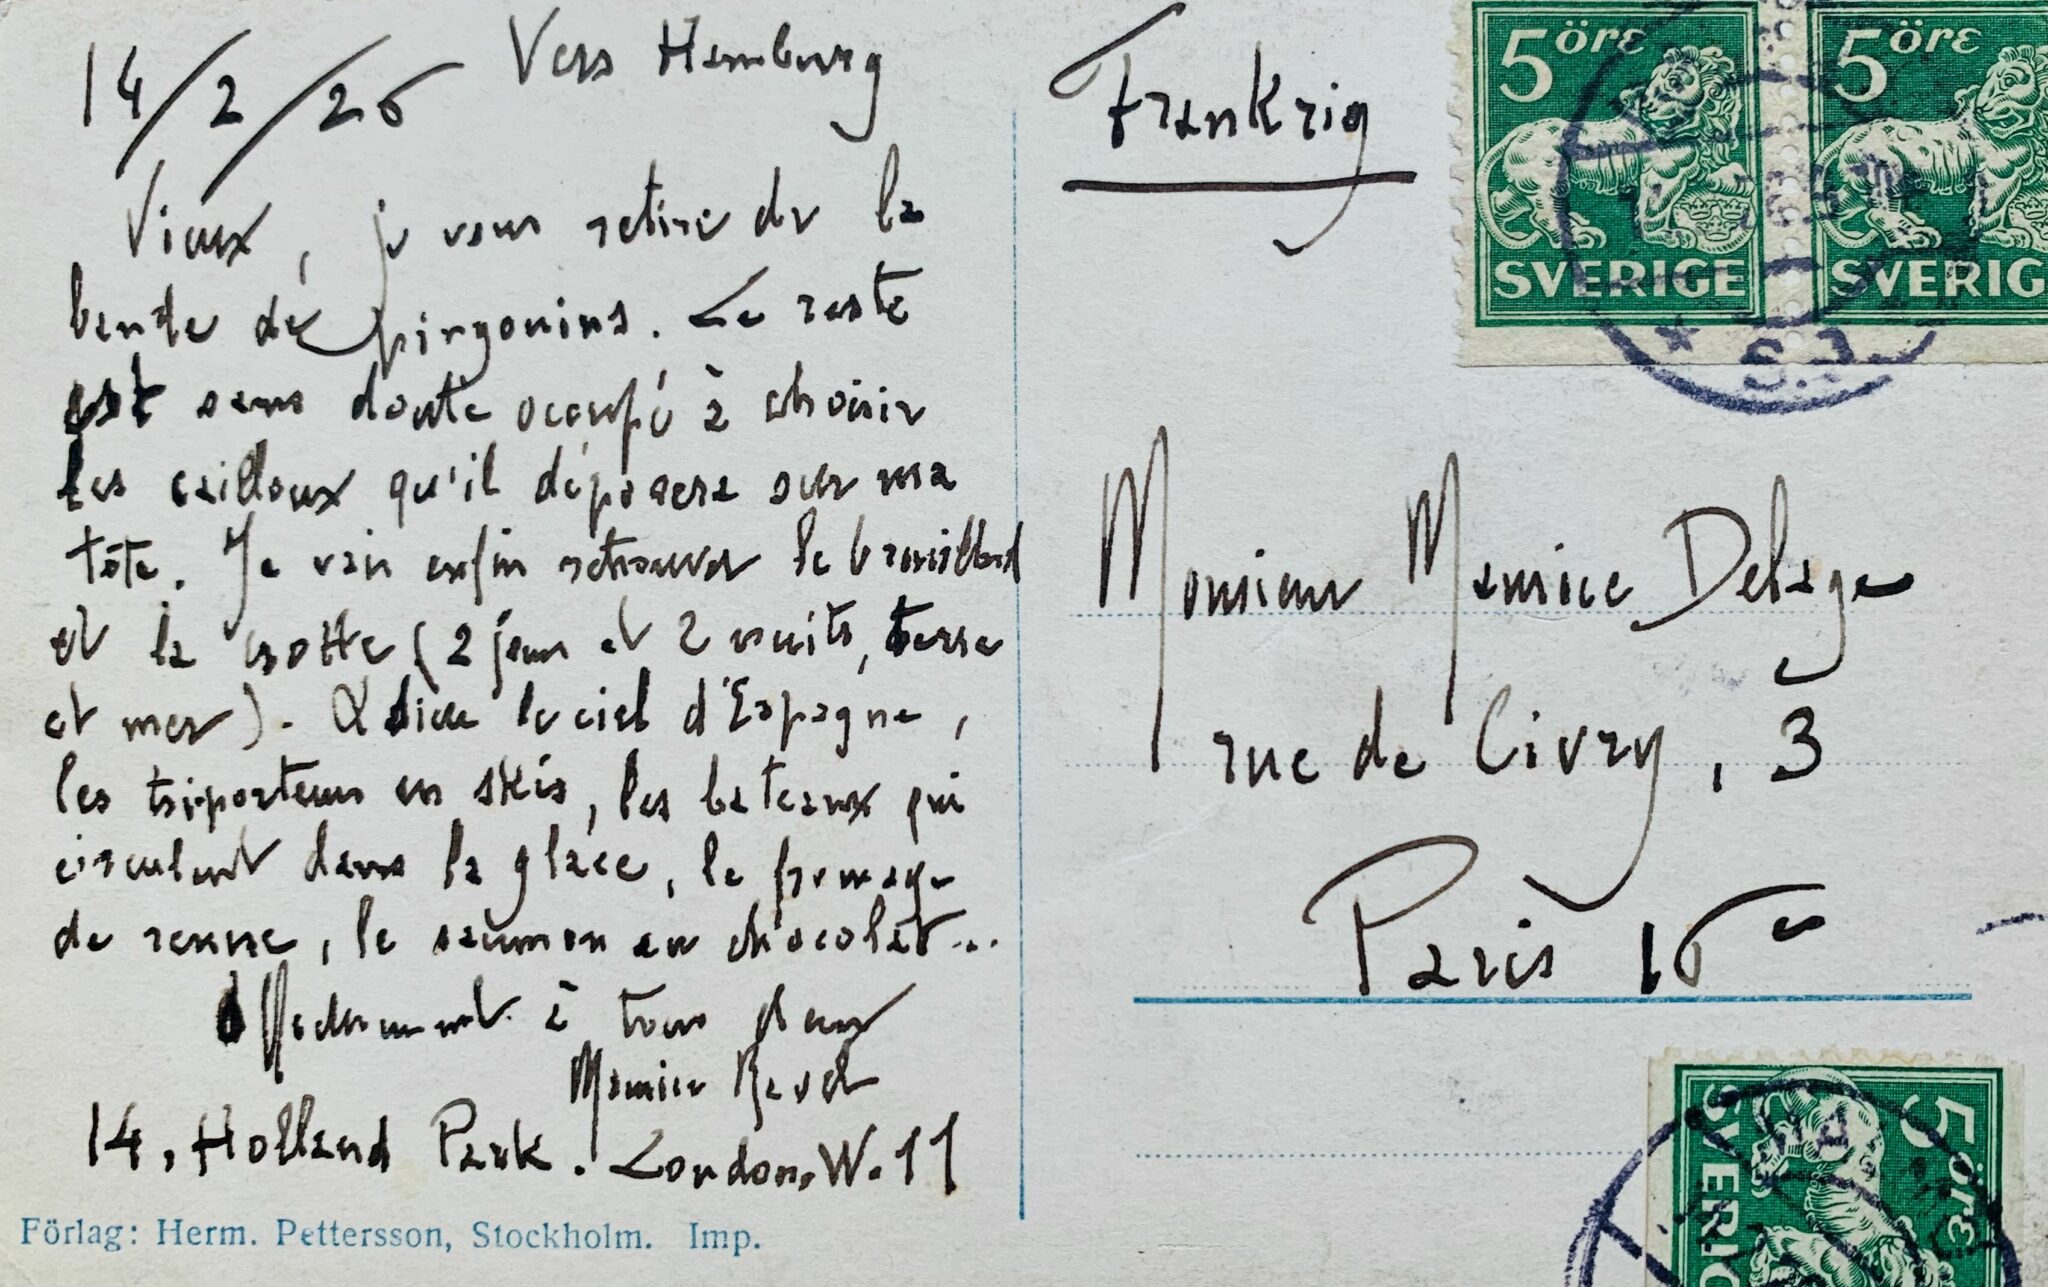 14/2/26 Vers Hamburg
Vieux, je vous retire de la
bande de pingouins. Le reste
est sans doute occupé à choisir
les cailloux qu'il déposera sur ma
tête. Je vais enfin retrouver le brouillard
et la crotte (2 jours et 2 nuits, terre
et mer). Adieu le ciel d'Espagne,
les triporteurs en skis, les bateaux qui
circulent dans la glace, le fromage
de renne, le saumon au chocolat...
Affectueusement à tous deux
Maurice Ravel
14, Holland Park. London. W. 11
Förlag: Herm. Pettersson, Stockholm. Imp.
Frankrig
Monsieur Maurice Delage
rue de Civry, 3
Paris 16e
5 öre
SVERIGE
5 öre
SVERIG
S.J.
5 öre
SVERIG